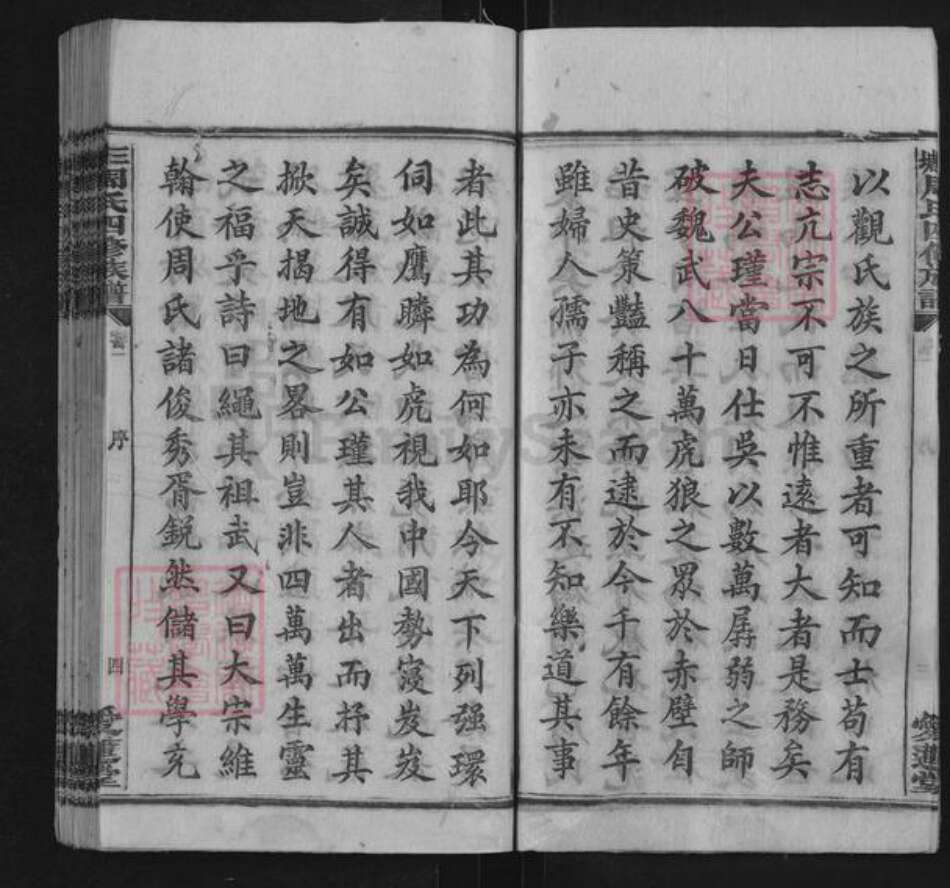 以觀氏族之所重者可知而士苟有
志亢宗不可不惟遠者大者是務矣
夫公瑾當日仕吳以數萬孱弱之師
破魏武八十萬虎狼之眾於赤壁自
昔史策豔稱之而逮於今千有餘年
雖婦人孺子亦未有不知樂道其事
者此其功為何如耶今天下列强環
伺如鷹瞵如虎視我中國勢寖岌岌
矣誠得有如公瑾其人者出而抒其
掀天揭地之畧則豈非四萬萬生靈
之福乎詩曰繩其祖武又曰大宗維
翰使周氏諸俊秀胥銳然儲其學充
周氏四修族譜
卷一
序
四
FamilySearch